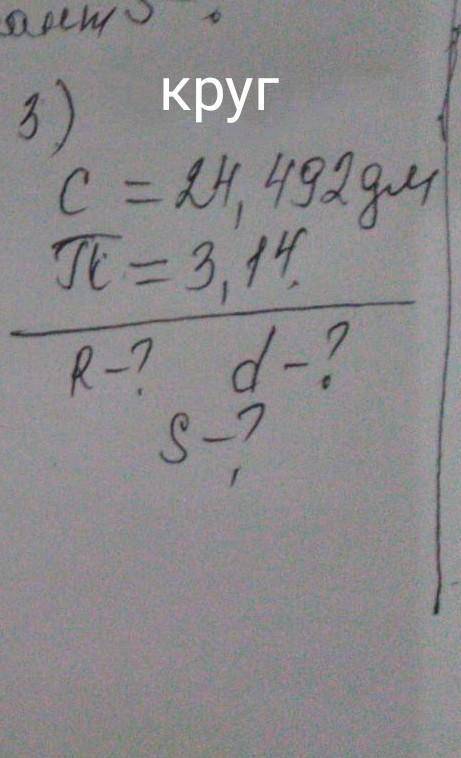 круг
3)
C = 24,492 дм
π = 3,14.
R - ? d - ?
S - ?